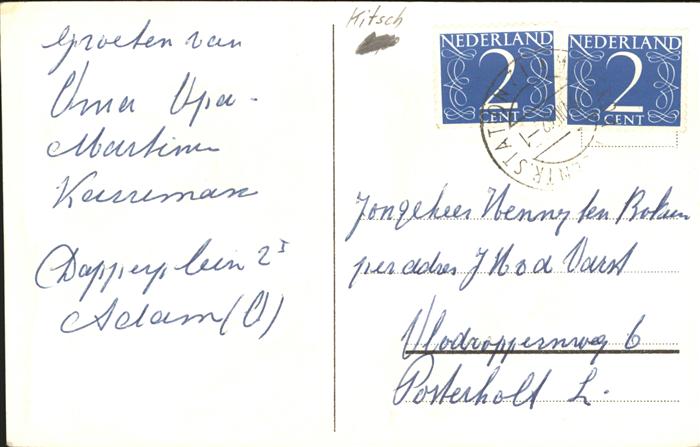 Groeten van
Oma Opa-
Martine
Dapperplein 2 I
Adam (O)
Kitsch
NEDERLAND
2
CENT
NEDERLAND
2
CENT
STATION
Jongeheer Henny ten
per adres J
Vlodropperweg 6
Posterholt L.